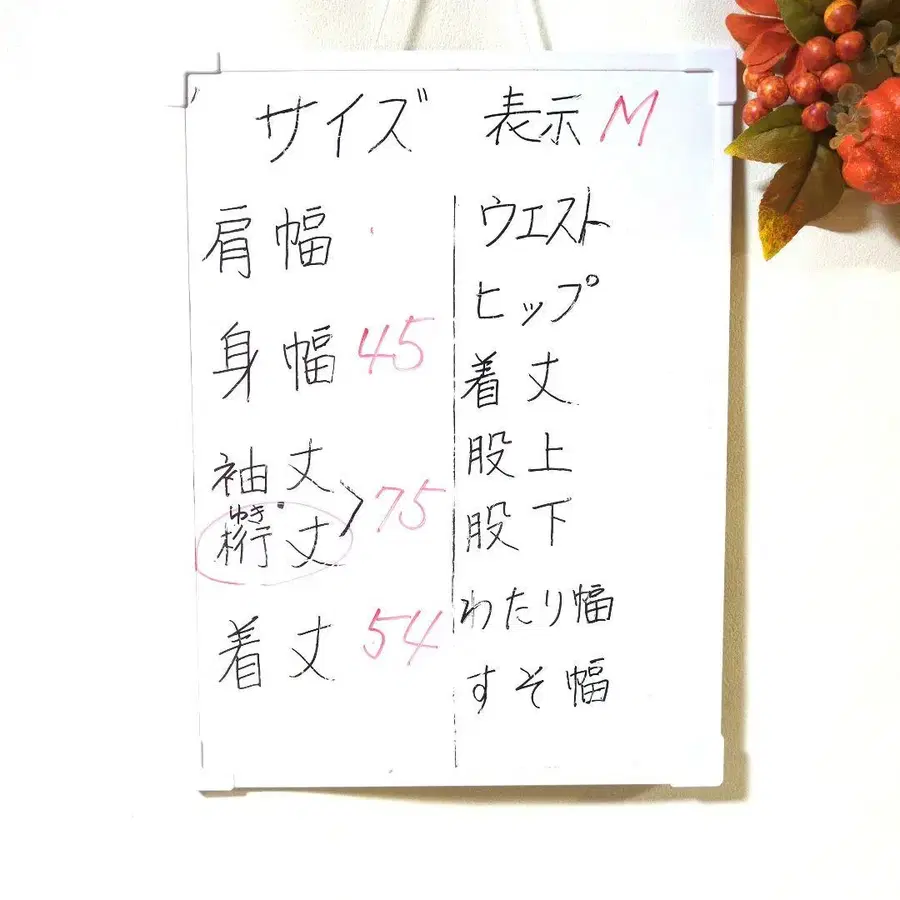 サイズ 表示 M
肩幅
身幅 45
袖丈
ゆき
桁丈 75
着丈 54
ウエスト
ヒップ
着丈
股上
股下
わたり幅
すそ幅